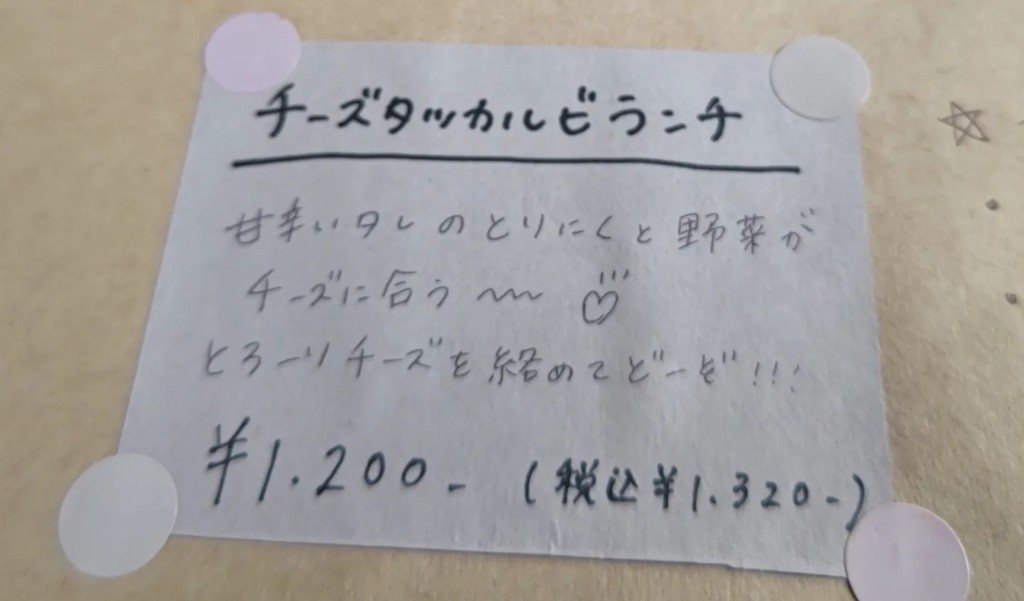 チーズタッカルビランチ
甘辛いタレのとりにくと野菜が
チーズに合う〰 ♡
とろーりチーズを絡めてどーぞ!!!
¥1.200- (税込¥1.320-)